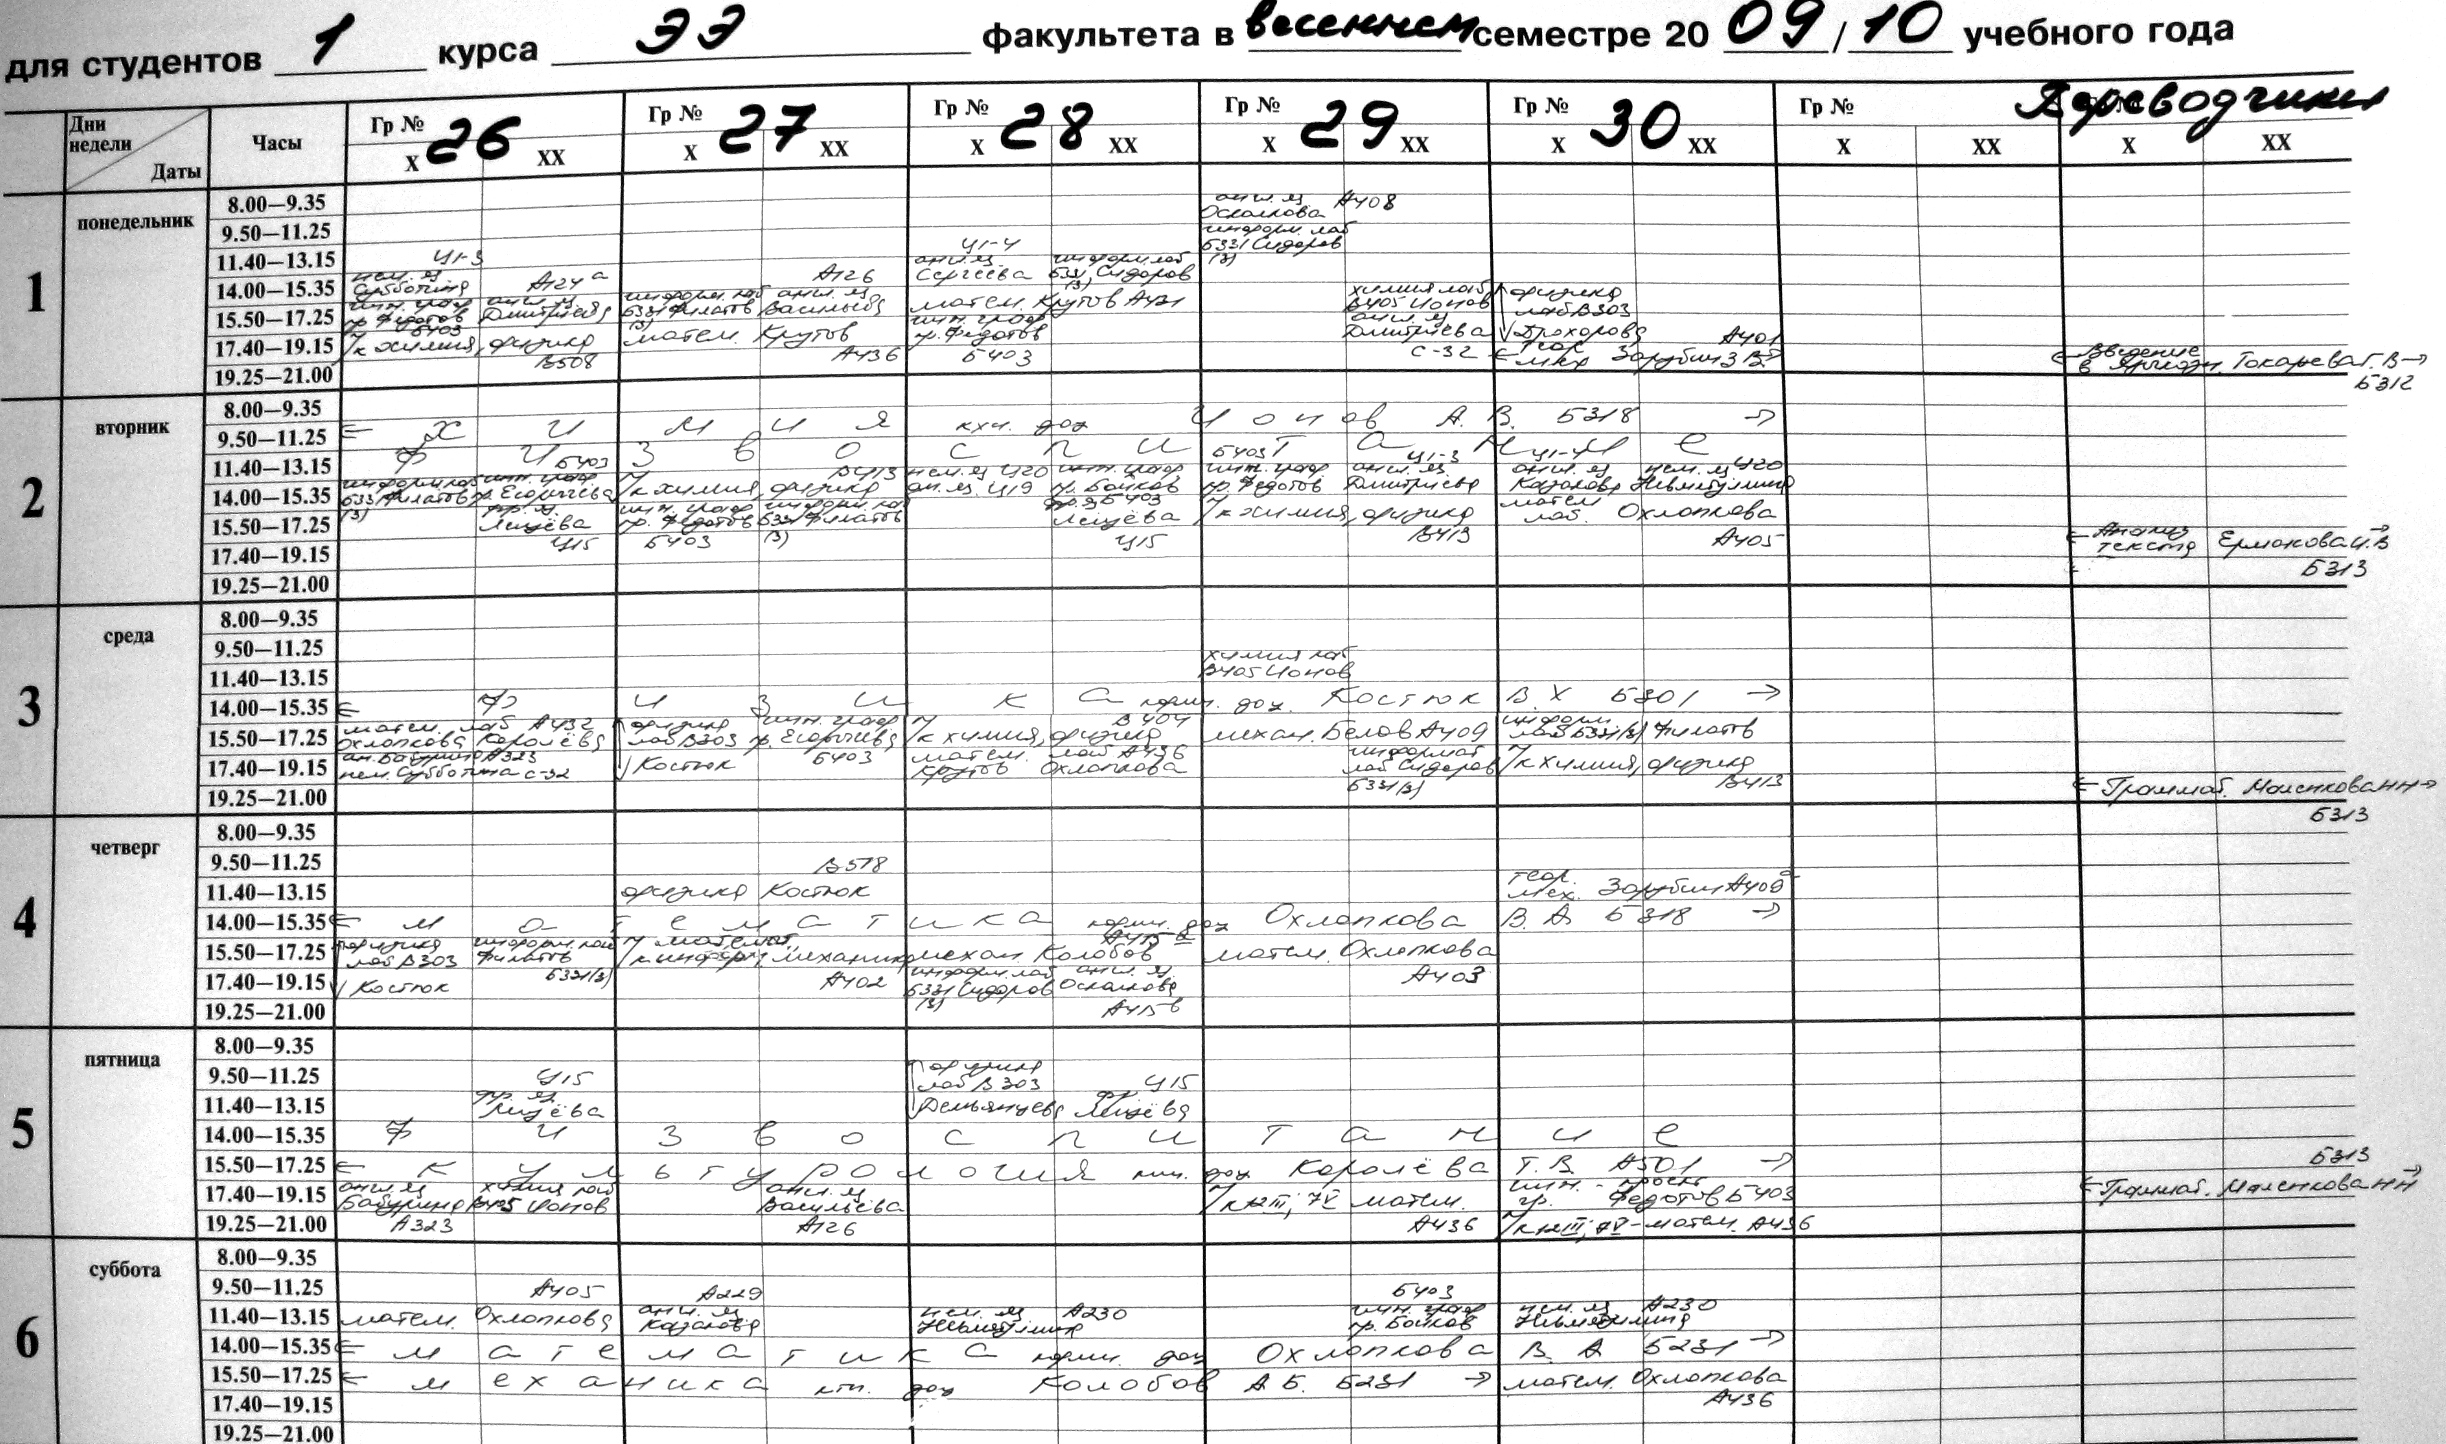 для студентов 1 курса ЭЭ факультета в весеннем семестре 20 09/10 учебного года
Дни недели Даты Часы Гр № 26 Гр № 27 Гр № 28 Гр № 29 Гр № 30 Гр № Переводчики
X XX X XX X XX X XX X XX X XX X XX
1 понедельник
8.00—9.35 англ. яз. А408
9.50—11.25 информ. лаб
11.40—13.15 Ц1-3 Ц1-4 Б331 Сидоров
14.00—15.35 нем. яз. Субботина А124а А126 англ. яз Сергеева информ. лаб Б331 Сидоров (3)
15.50—17.25 инж. граф пр. Федотов Б403 англ. яз Дмитриева информ. лаб Б331 Филатов (3) англ. яз Васильева матем. Крутов А431 химия лаб В405 Ионов физика лаб В303
17.40—19.15 ч/к химия, физика В508 матем. Крутов А436 инж. граф пр. Федотов Б403 англ. яз Дмитриева С-32 Прохорова А401
19.25—21.00 теор. Зарубин З В Введение в Токарева Г.В Б312
2 вторник
8.00—9.35
9.50—11.25 химия Ионов А. В. Б318
11.40—13.15 физвоспитание
14.00—15.35 информ. лаб Б331 Филатов (3) инж. граф пр. Егорычева Б403 ч/к химия, физика В413 нем. яз Ц20 ан. яз. Ц19 инж. граф пр. Бойков Б403 инж. граф пр. Федотов Б403 англ. яз. Дмитриева Ц1-3 англ. яз Казакова Ц1-4 нем. яз Ц20
15.50—17.25 фр. яз. Лещёва Ц15 инж. граф пр. Федотов Б403 информ. лаб Б331 Филатов (3) фр. яз Лещёва Ц15 ч/к химия, физика В413 матем лаб. Охлопкова А405
17.40—19.15 Анализ текста Ермакова И.В
19.25—21.00 Б313
3 среда
8.00—9.35
9.50—11.25
11.40—13.15 химия лаб В405 Ионов
14.00—15.35 физика Костюк В. Х Б301
15.50—17.25 матем. лаб А432 Охлопкова Королёва физика лаб В303 инж. граф пр. Егорычева ч/к химия, физика В404 механ. Белов А409 информ. лаб Б331(3) Филатов
17.40—19.15 ан. Бабурина А323 нем. Субботина С-32 Костюк Б403 матем. лаб А436 Крутов Охлопкова информ. лаб Сидоров Б331(3) ч/к химия, физика В413
19.25—21.00 Граммат. Маленкова НН Б313
4 четверг
8.00—9.35
9.50—11.25 В578
11.40—13.15 физика Костюк теор. мех. Зарубин А409
14.00—15.35 математика Охлопкова В. А Б318
15.50—17.25 физика лаб В303 информ. лаб Филатов ч/к математ., информ, механика механ. Колобов матем. Охлопкова
17.40—19.15 Костюк Б331(3) А402 информ. лаб Б331 Сидоров (3) англ. яз. А403
19.25—21.00 А415в
5 пятница
8.00—9.35
9.50—11.25 Ц15 физика лаб В303 Ц15
11.40—13.15 фр. яз Лещёва Демьянцева фр Лещёва
14.00—15.35 физвоспитание
15.50—17.25 культурология Королёва Т. В. А501 Б313
17.40—19.15 англ. яз Бабурина химия лаб В405 Ионов англ. яз Васильева матем. гр. Федотов Б403 Граммат. Маленкова НН
19.25—21.00 А323 А126 А436 матем. А436
6 суббота
8.00—9.35
9.50—11.25 А405 А229 Б403
11.40—13.15 матем. Охлопкова англ. яз Казакова нем. яз А230 инж. граф пр. Бойков нем. яз А230
14.00—15.35 математика Охлопкова В. А Б231
15.50—17.25 механика Колобов А Б. Б231 матем. Охлопкова
17.40—19.15 А436
19.25—21.00